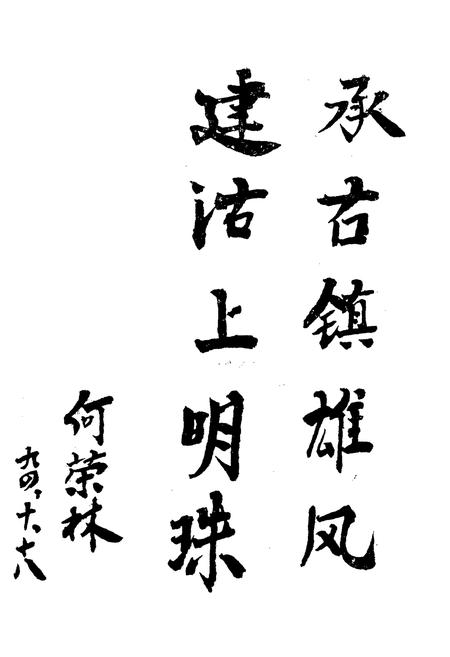 承古镇雄风
建沽上明珠
何荣林
九四、十、十八